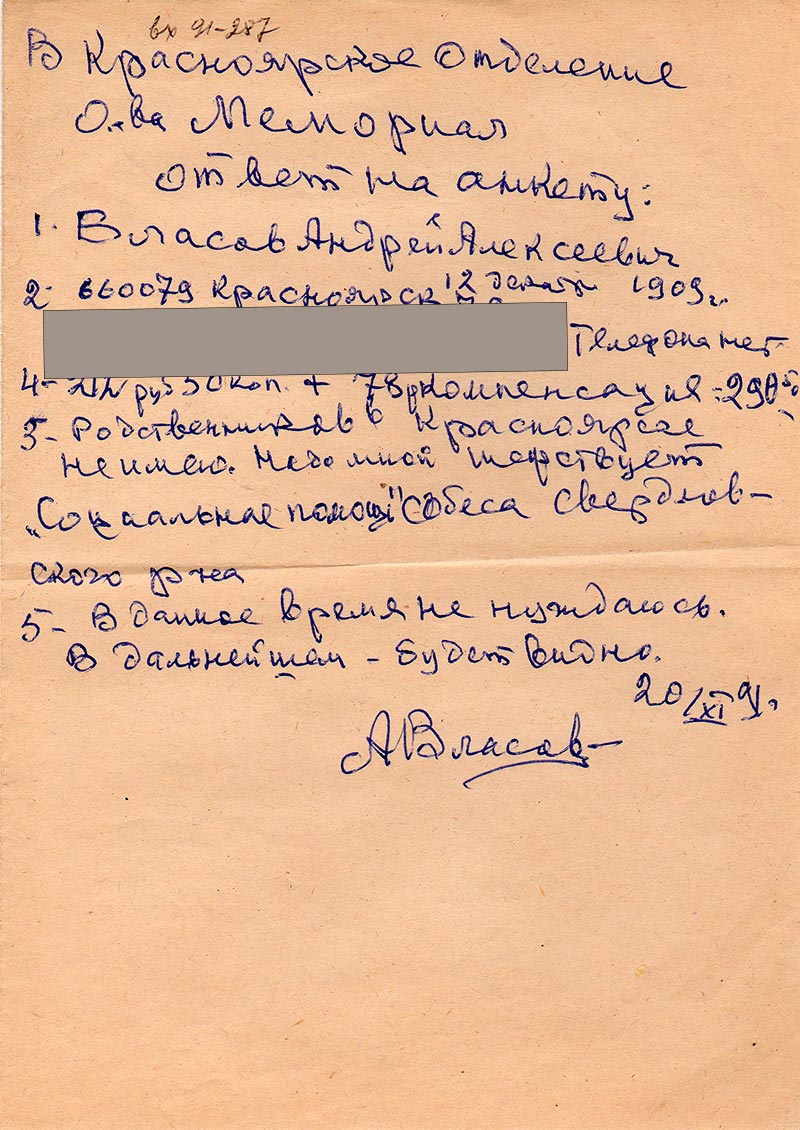 вх 91-287
В Красноярское Отделение
О-ва Мемориал
ответ на анкету:
1. Власов Андрей Алексеевич
2- 660079 Красноярск 12 декабр 1909 г.
Телефона нет
4- 212 руб 50 коп. + 78 р компенсация = 290 50
3- Родственников в Красноярске
не имею. Надо мной шефствует
„Социальнае помощь" собеса Свердлов-
ского р-на
5- В данное время не нуждаюсь.
В дальнейшем - будет видно.
20/XI 91.
АВласов